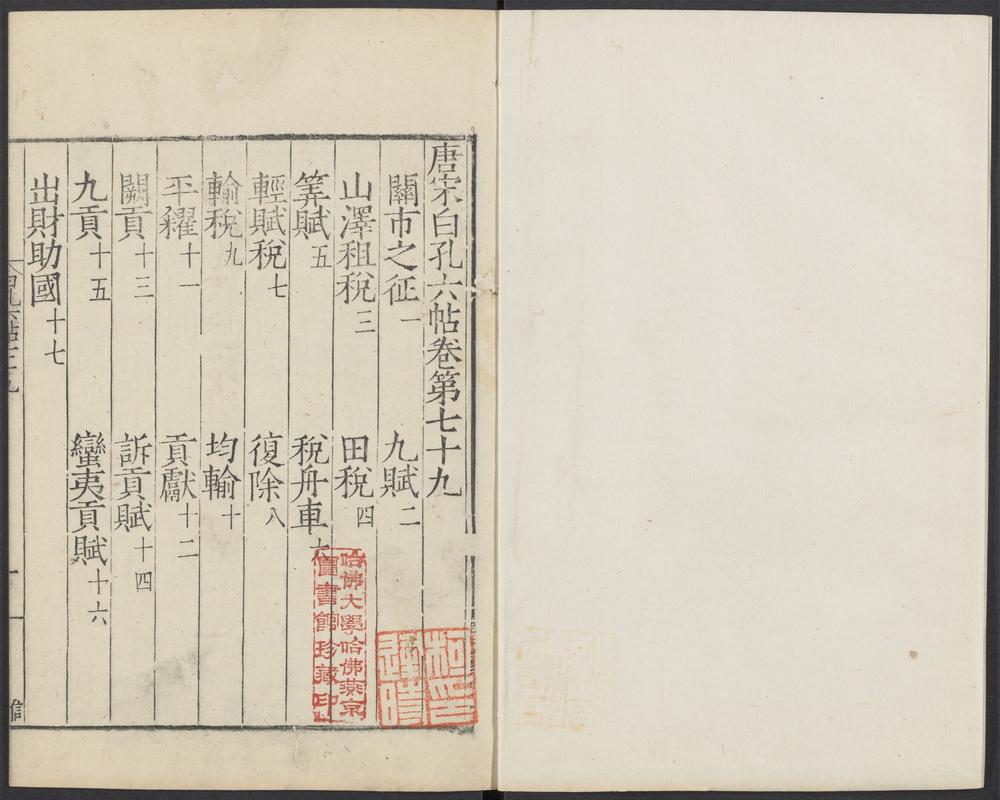 唐宋白孔六帖卷第七十九
關市之征一 九賦二
山澤租稅三 田稅四
筭賦五 稅舟車六
輕賦稅七 復除八
輸稅九 均輸十
平糴十一 貢獻十二
闕貢十三 訴貢賦十四
九貢十五 蠻夷貢賦十六
出財助國十七
哈佛大學哈佛燕京
圖書館珍藏印